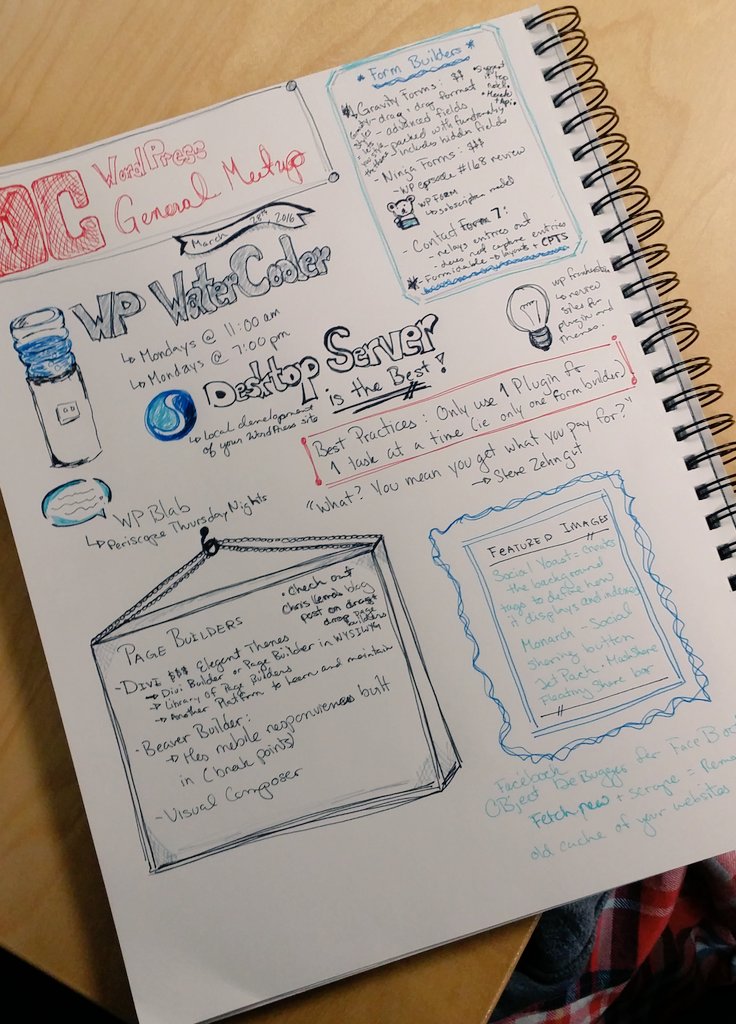 OC WordPress
General Meetup
March 28th 2016
WP WaterCooler
↳ Mondays @ 11:00 am
↳ Mondays @ 7:00 pm
Desktop Server
is the Best!
↳ local development
of your WordPress site
WP Blab
↳ Periscope Thursday Nights
* Form Builders *
Gravity Forms: $$
- drag & drop format
- advanced fields
- packed with functionality
includes hidden fields
- Ninja Forms: $$$
- WP episode #168 review
WP Form
↳ subscription model
- Contact Form 7:
- relays entries out
- does not capture entries
* Formidable → layouts + CPTS
↳ review
sites for
plugin and
themes.
Best Practices: Only use 1 Plugin for
1 task at a time (ie only one form builder)
"What? You mean you get what you pay for?"
→ Steve Zehngut
Page Builders
• Check out
Chris Lema's blog
post on drag +
drop Page
builders
- Divi $$$ Elegant Themes
→ Divi Builder or Page Builder in WYSIWYG
→ Library of Page Builders
→ Another Platform to learn and maintain
- Beaver Builder:
→ Has mobile responsiveness built
in (break points)
- Visual Composer
Featured Images
Social Yoast = Creates
the background
tags to define how
it displays and indexes
Monarch - Social
sharing button
Jet Pack, MashShare
Floating Share bar
Facebook
Object DeBugger for FaceBook
Fetch new + scrape =
old cache of your websites